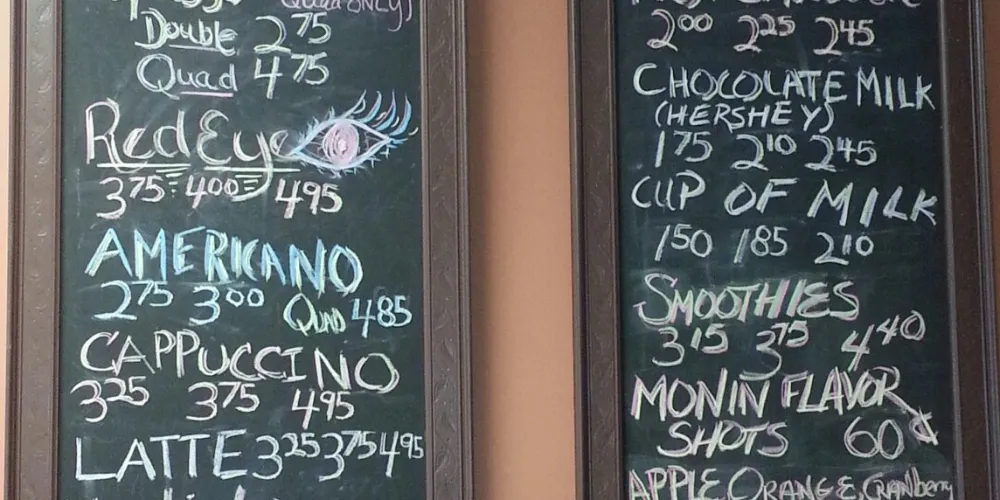 Quad ONLY)
Double 2 75
Quad 4 75
Red Eye
3 75 4 00 4 95
AMERICANO
2 75 3 00 Quad 4 85
CAPPUCCINO
3 25 3 75 4 95
LATTE 3 25 3 75 4 95
2 00 2 25 2 45
CHOCOLATE MILK
(HERSHEY)
1 75 2 10 2 45
CUP OF MILK
1 50 1 85 2 10
SMOOTHIES
3 15 3 75 4 40
MONIN FLAVOR
SHOTS 60¢
APPLE, ORANGE, CRANberry